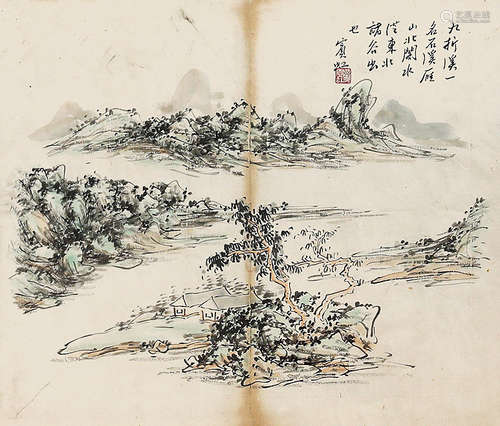 九折溪一
名石溪雁
山北閣水
從東北
諸谷出
也 賓虹